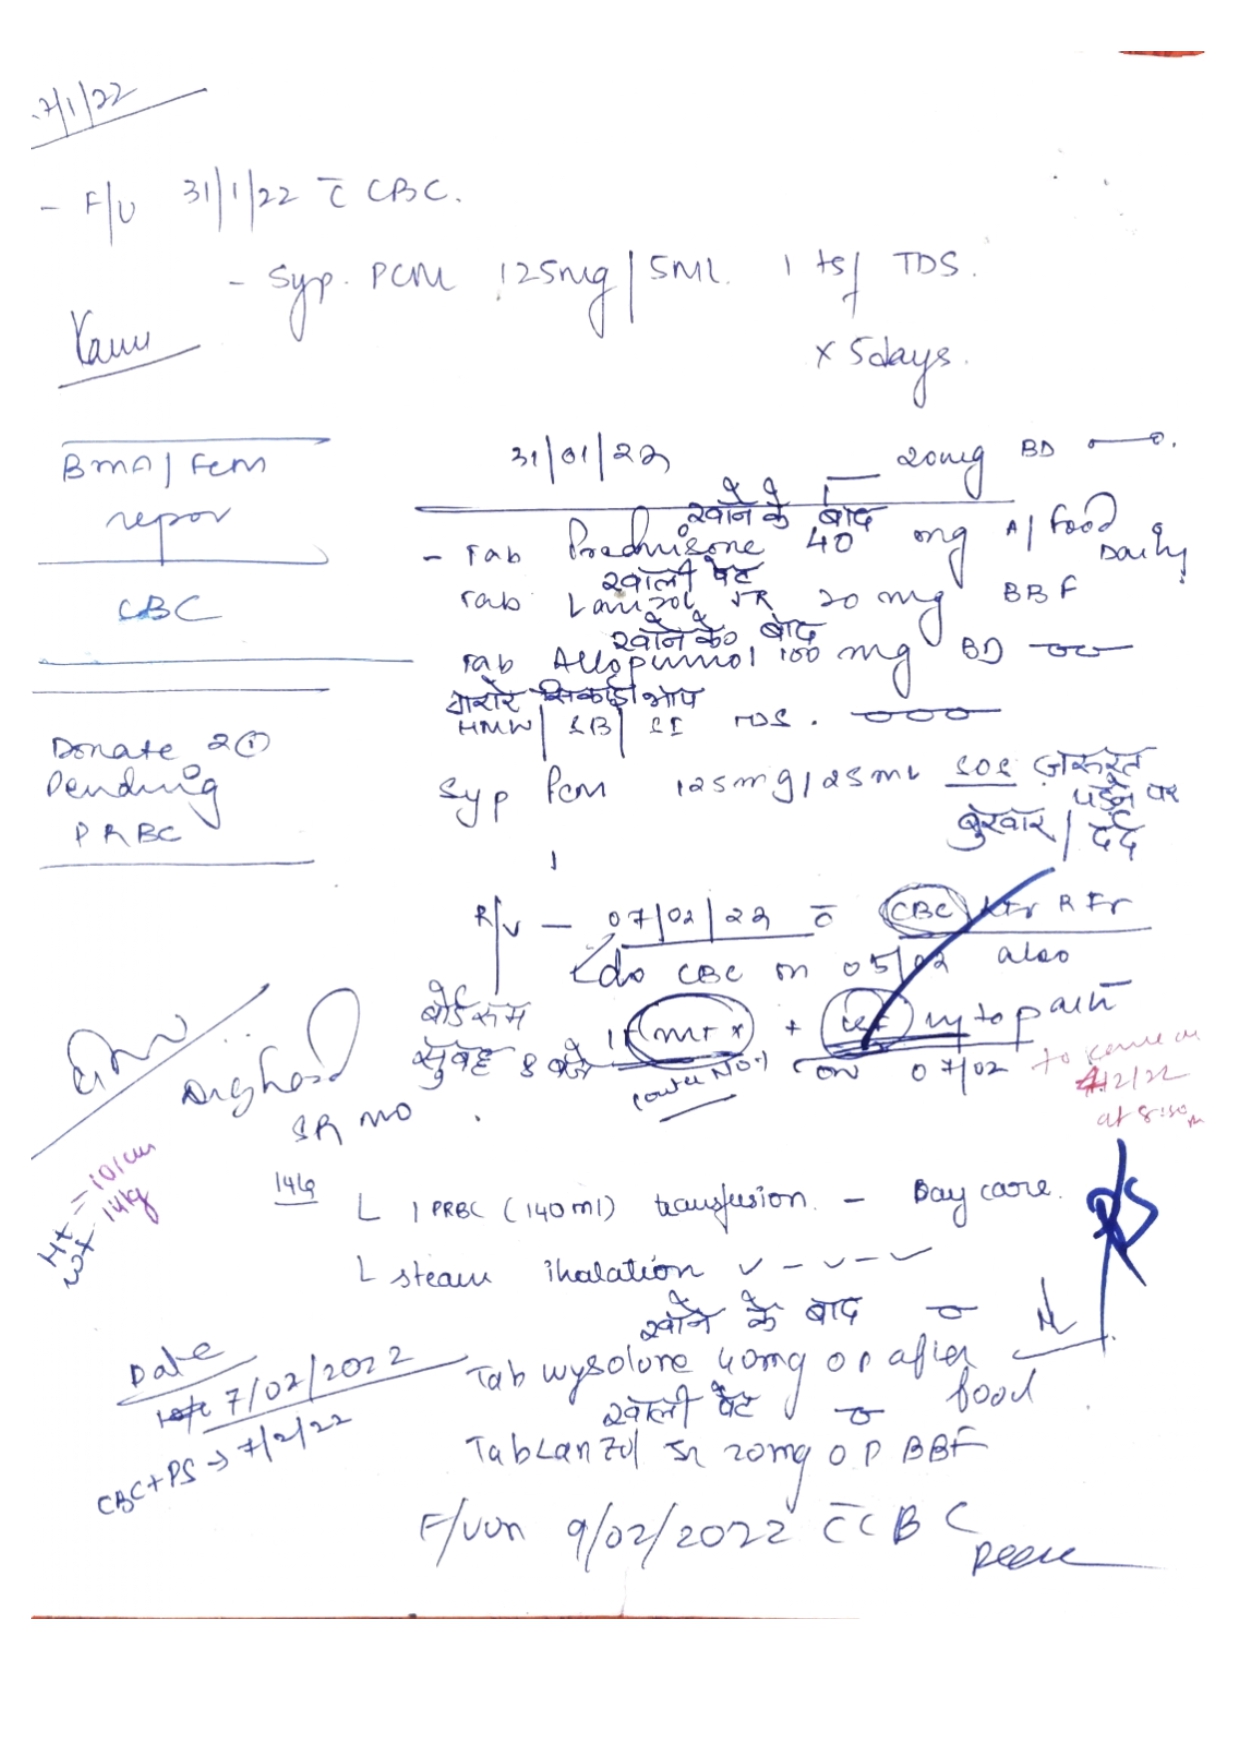 7/1/22
- F/U 31/1/22 c̄ CBC.
- Syp. PCM 125mg/5ml. 1 tsf TDS.
x 5days.
BMA/FCM
repor
CBC
Donate 2 ①
Pending
PRBC
31/01/22
20mg BD
खाने के बाद
- Tab Prednisone 40 mg A/food
Daily
खाली पेट
Tab Lanzol JR 20 mg BBF
खाने के बाद
Tab Allopurinol 100 mg BD
गरारे सिकाई भाप
HMW/SB/SI TDS.
Syp Pcm 125mg/25ml SOS ज़रूरत
पड़ने पर
बुखार/दर्द
R/v - 07/02/22 c̄ CBC KFT RFT
do CBC on 05/02 also
बोर्ड रूम
सुबह 8 बजे
IT MTX +
on 07/02
to come on
4/2/22
at 8:30
SR MO
Ht = 101cm
Wt - 14kg
14kg
L 1 PRBC (140ml) transfusion. - Day care.
L steam ihalation
खाने के बाद
Tab wysolone 40mg OP after
food
खाली पेट
Tab Lanzol Jr 20mg OP BBF
Date
7/02/2022
CBC+PS → 7/2/22
F/U on 9/02/2022 c̄ CBC